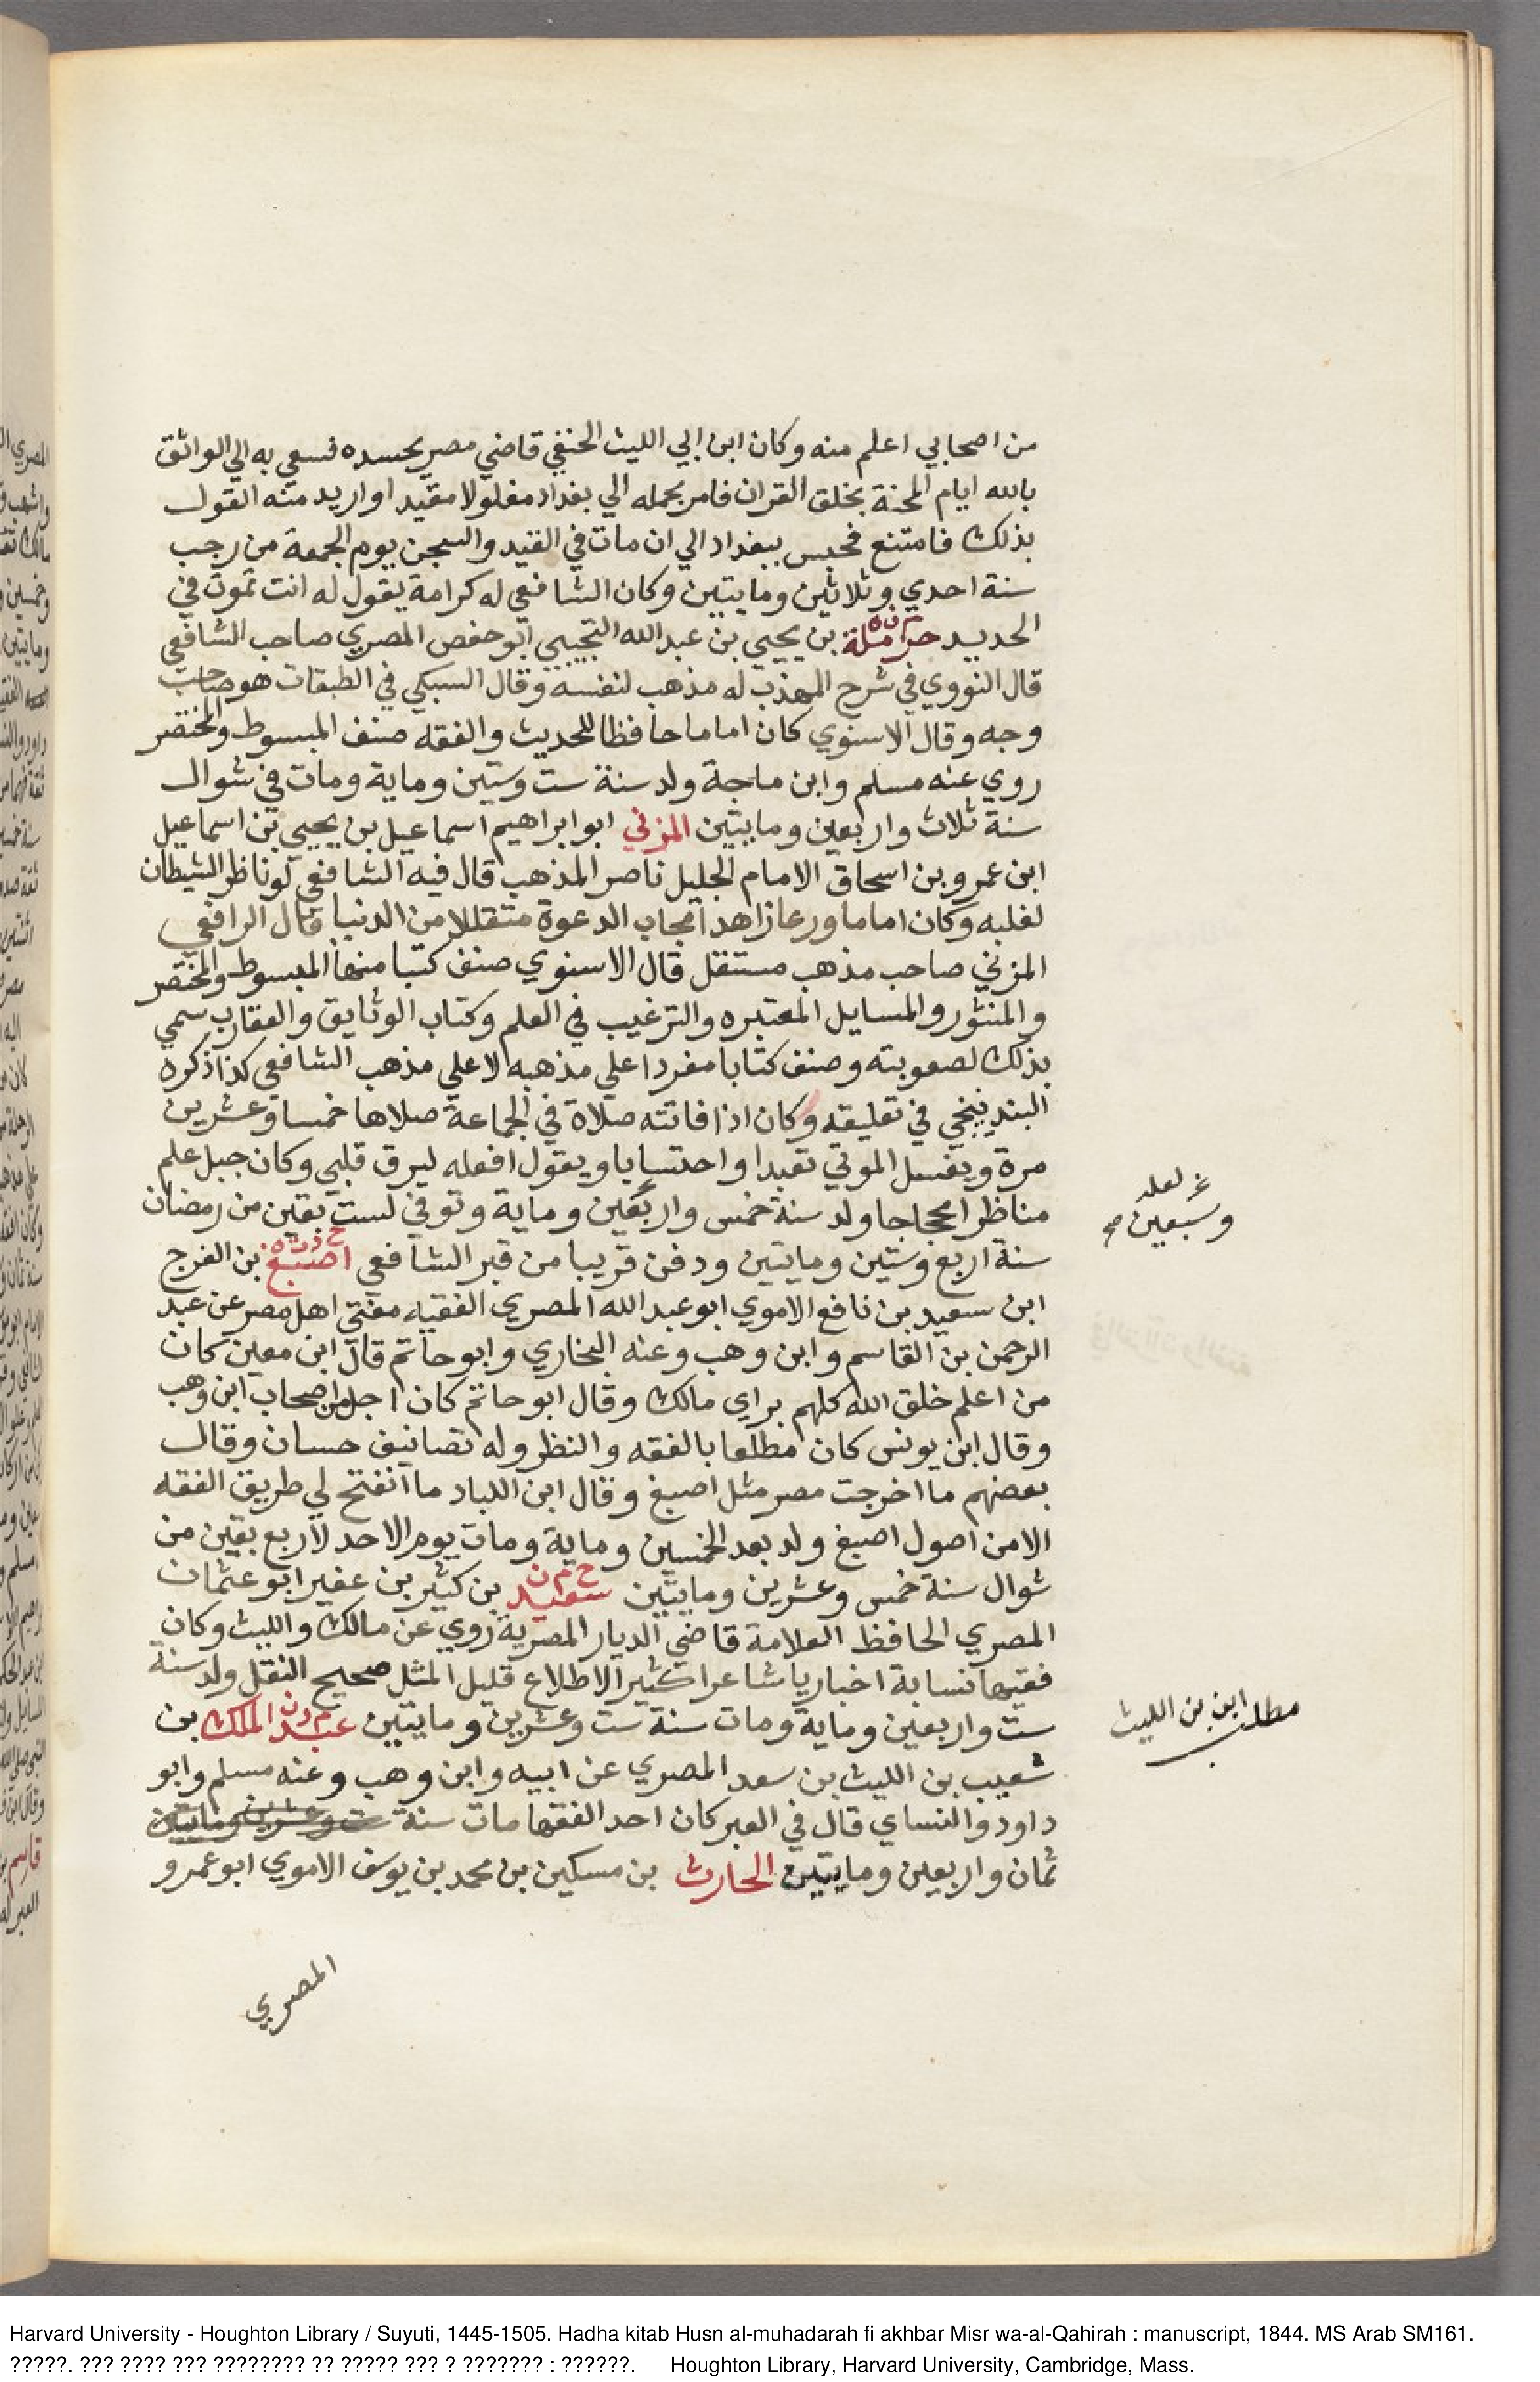 من اصحابي اعلم منه وكان ابن ابي الليث الحنفي قاضي مصر يحسده فسعي به الي الواثق
بالله ايام المحنة بخلق القران فامر بحمله الي بغداد مغلولا مقيد او اريد منه القول
بذلك فامتنع فحبس ببغداد الي ان مات في القيد والسجن يوم الجمعة من رجب
سنة احدي وثلاثين ومايتين وكان الشافعي له كرامة يقول له انت تموت في
الحديد حرملة بن يحيي بن عبد الله التجيبي ابو حفص المصري صاحب الشافعي
قال النووي في شرح المهذب له مذهب لنفسه وقال السبكي في الطبقات هو صاحب
وجه وقال الاسنوي كان اماما حافظا للحديث والفقه صنف المبسوط والمختصر
روي عنه مسلم وابن ماجة ولد سنة ست وستين وماية ومات في شوال
سنة ثلاث واربعين ومايتين المزني ابو ابراهيم اسماعيل بن يحيي بن اسماعيل
ابن عمرو بن اسحاق الامام الجليل ناصر المذهب قال فيه الشافعي لو ناظر الشيطان
لغلبه وكان اماما ورعا زاهدا مجاب الدعوة متقللا من الدنيا قال الرافعي
المزني صاحب مذهب مستقل قال الاسنوي صنف كتبا منها المبسوط والمختصر
والمنثور والمسايل المعتبره والترغيب في العلم وكتاب الوثايق والعقارب سمي
بذلك لصعوبته وصنف كتابا مفردا علي مذهبه لا علي مذهب الشافعي كذا ذكره
البندنيخي في تعليقه وكان اذا فاتته صلاة في الجماعة صلاها خمسا وعشرين
مرة ويغسل الموتي تعبدا واحتسابا ويقول افعله ليرق قلبي وكان جبل علم
مناظرا محجاجا ولد سنة خمس واربعين وماية وتوفي لست بقين من رمضان
غ لعله
وسبعين صح
سنة اربع وستين ومايتين ودفن قريبا من قبر الشافعي اصبغ بن الفرج
ابن سعيد بن نافع الاموي ابو عبد الله المصري الفقيه مفتي اهل مصر عن عبد
الرحمن بن القاسم وابن وهب وعنه البخاري وابو حاتم قال ابن معين كان
من اعلم خلق الله كلهم براي مالك وقال ابو حاتم كان اجل من اصحاب ابن وهب
وقال ابن يونس كان مطلعا بالفقه والنظر وله تصانيف حسان وقال
بعضهم ما اخرجت مصر مثل اصبغ وقال ابن اللباد ما انفتح لي طريق الفقه
الا من اصول اصبغ ولد بعد الخمسين وماية ومات يوم الاحد لاربع بقين من
شوال سنة خمس وعشرين ومايتين سعيد بن كثير بن عفير ابو عثمان
المصري الحافظ العلامة قاضي الديار المصرية روي عن مالك والليث وكان
فقيها نسابة اخباريا شاعرا كثير الاطلاع قليل المثل صحيح النقل ولد سنة
ست واربعين وماية ومات سنة ست وعشرين ومايتين عبد الملك بن
مطلب ابن بن الليث
شعيب بن الليث بن سعد المصري عن ابيه وابن وهب وعنه مسلم وابو
داود والنساي قال في العبر كان احد الفقها مات سنة ست وعشرين ومايتين
ثمان واربعين ومايتين الحارث بن مسكين بن محمد بن يوسف الاموي ابو عمرو
المصري
Harvard University - Houghton Library / Suyuti, 1445-1505. Hadha kitab Husn al-muhadarah fi akhbar Misr wa-al-Qahirah : manuscript, 1844. MS Arab SM161.
?????. ??? ???? ??? ???????? ?? ????? ??? ? ??????? : ??????. Houghton Library, Harvard University, Cambridge, Mass.